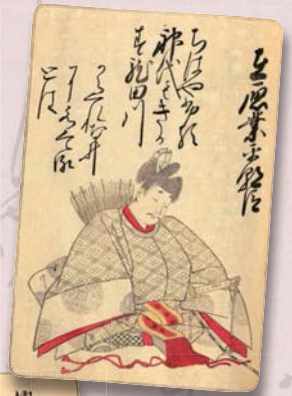 在原業平朝臣
ちはやふる
神代もきか
す龍田川
からくれなゐ
に水くくる
とは